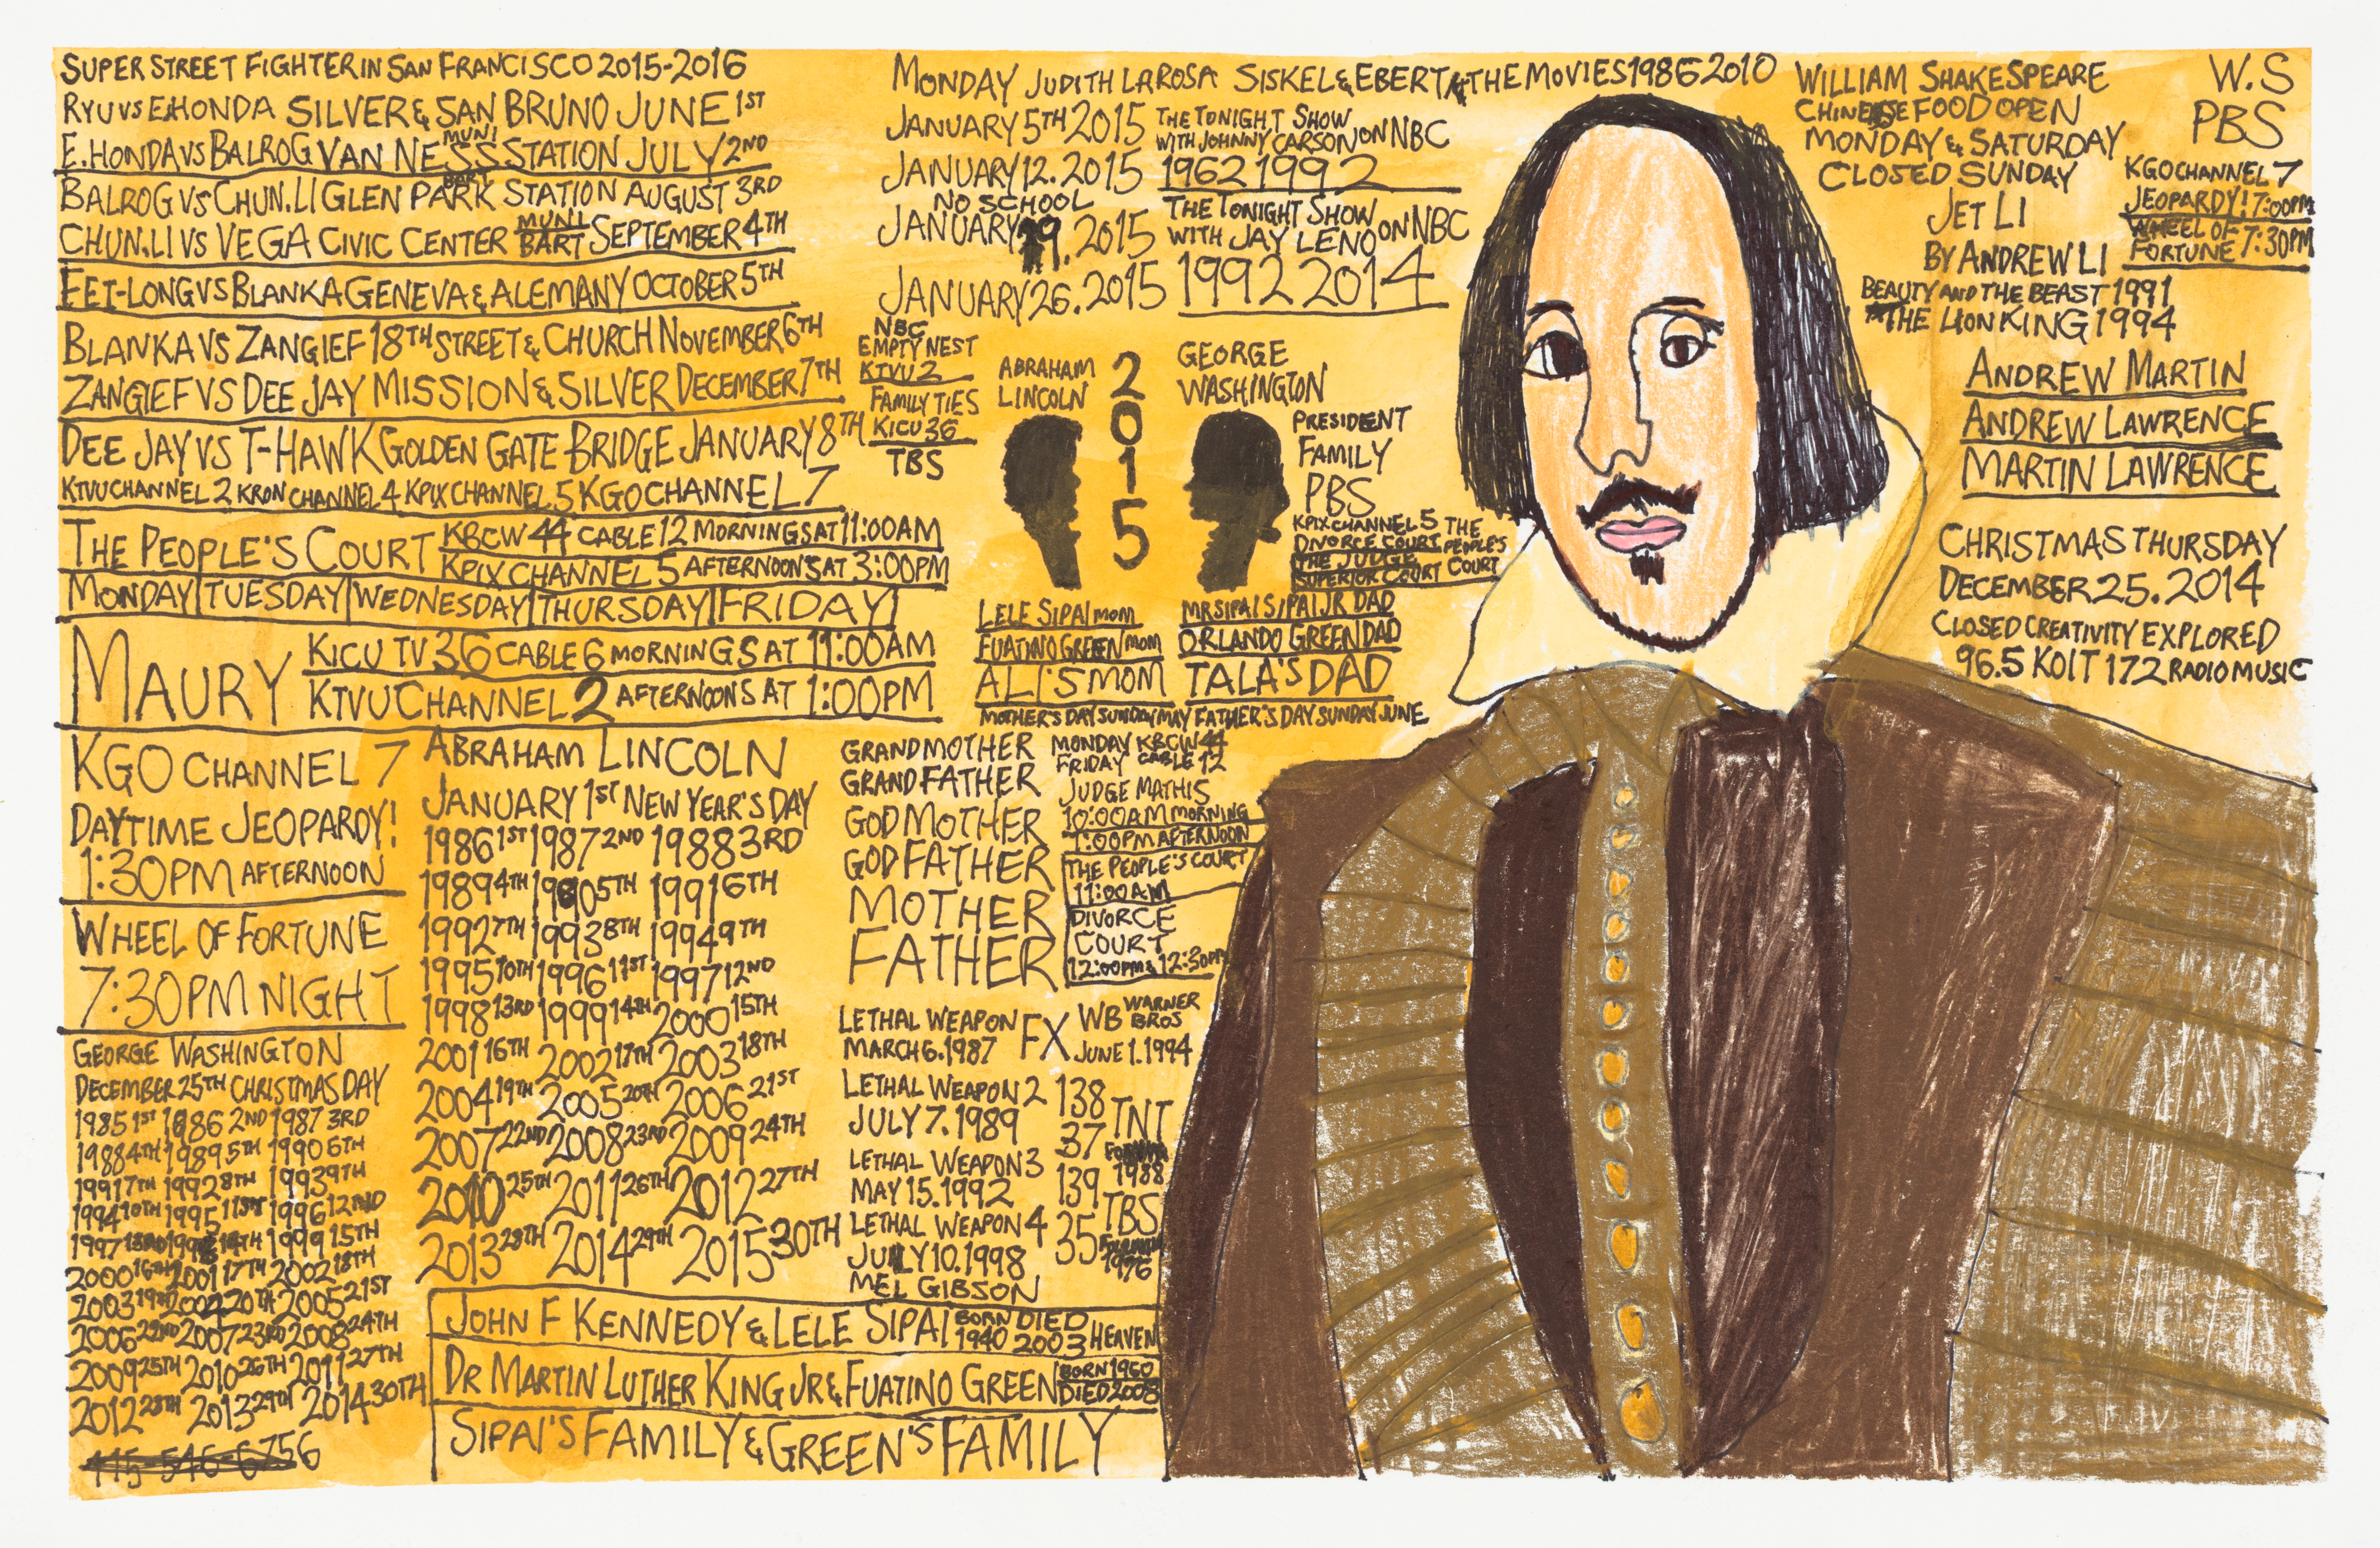 SUPER STREET FIGHTER IN SAN FRANCISCO 2015-2016
RYU VS E.HONDA SILVER & SAN BRUNO JUNE 1ST
E.HONDA VS BALROG VAN NESS MUNI STATION JULY 2ND
BALROG VS CHUN.LI GLEN PARK BART STATION AUGUST 3RD
CHUN.LI VS VEGA CIVIC CENTER MUNI BART SEPTEMBER 4TH
FEI-LONG VS BLANKA GENEVA & ALEMANY OCTOBER 5TH
BLANKA VS ZANGIEF 18TH STREET & CHURCH NOVEMBER 6TH
ZANGIEF VS DEE JAY MISSION & SILVER DECEMBER 7TH
DEE JAY VS T-HAWK GOLDEN GATE BRIDGE JANUARY 8TH
KTVU CHANNEL 2 KRON CHANNEL 4 KPIX CHANNEL 5 KGO CHANNEL 7
THE PEOPLE'S COURT
KBCW 44 CABLE 12 MORNINGS AT 11:00AM
KPIX CHANNEL 5 AFTERNOON'S AT 3:00PM
MONDAY|TUESDAY|WEDNESDAY|THURSDAY|FRIDAY|
MAURY
KICU TV 36 CABLE 6 MORNINGS AT 11:00AM
KTVU CHANNEL 2 AFTERNOONS AT 1:00PM
KGO CHANNEL 7
DAYTIME JEOPARDY!
1:30PM AFTERNOON
WHEEL OF FORTUNE
7:30PM NIGHT
GEORGE WASHINGTON
DECEMBER 25TH CHRISTMAS DAY
1985 1ST 1986 2ND 1987 3RD
1988 4TH 1989 5TH 1990 6TH
1991 7TH 1992 8TH 1993 9TH
1994 10TH 1995 11ST 1996 12ND
1997 13RD 1998 14TH 1999 15TH
2000 16TH 2001 17TH 2002 18TH
2003 19TH 2004 20TH 2005 21ST
2006 22ND 2007 23RD 2008 24TH
2009 25TH 2010 26TH 2011 27TH
2012 28TH 2013 29TH 2014 30TH
ABRAHAM LINCOLN
JANUARY 1ST NEW YEAR'S DAY
1986 1ST 1987 2ND 1988 3RD
1989 4TH 1990 5TH 1991 6TH
1992 7TH 1993 8TH 1994 9TH
1995 10TH 1996 11ST 1997 12ND
1998 13RD 1999 14TH 2000 15TH
2001 16TH 2002 17TH 2003 18TH
2004 19TH 2005 20TH 2006 21ST
2007 22ND 2008 23RD 2009 24TH
2010 25TH 2011 26TH 2012 27TH
2013 28TH 2014 29TH 2015 30TH
JOHN F KENNEDY & LELE SIPAI BORN 1940 DIED 2003 HEAVEN
DR MARTIN LUTHER KING JR & FUATINO GREEN BORN 1960 DIED 2008
SIPAI'S FAMILY & GREEN'S FAMILY
MONDAY JUDITH LAROSA
JANUARY 5TH 2015
JANUARY 12. 2015
NO SCHOOL
JANUARY 19. 2015
JANUARY 26. 2015
SISKEL & EBERT & THE MOVIES 1986 2010
THE TONIGHT SHOW
WITH JOHNNY CARSON ON NBC
1962 1992
THE TONIGHT SHOW
WITH JAY LENO ON NBC
1992 2014
NBC
EMPTY NEST
KTVU 2
FAMILY TIES
KICU 36
TBS
ABRAHAM
LINCOLN
2015
GEORGE
WASHINGTON
PRESIDENT
FAMILY
PBS
KPIX CHANNEL 5
DIVORCE COURT
THE JUDGE
SUPERIOR COURT
THE
PEOPLE'S
COURT
LELE SIPAI MOM
FUATINO GREEN MOM
ALI'S MOM
MR SIPAI SIPAI JR DAD
ORLANDO GREEN DAD
TALA'S DAD
MOTHER'S DAY SUNDAY MAY FATHER'S DAY SUNDAY JUNE
GRANDMOTHER
GRANDFATHER
GODMOTHER
GODFATHER
MOTHER
FATHER
MONDAY KBCW 44
FRIDAY CABLE 12
JUDGE MATHIS
10:00AM MORNING
1:00PM AFTERNOON
THE PEOPLE'S COURT
11:00AM
DIVORCE
COURT
12:00PM & 12:30PM
LETHAL WEAPON
MARCH 6.1987
FX
WB WARNER BROS
JUNE 1.1994
LETHAL WEAPON 2
JULY 7.1989
LETHAL WEAPON 3
MAY 15.1992
LETHAL WEAPON 4
JULY 10.1998
MEL GIBSON
138
37
TNT
1988
139
35
TBS
1976
WILLIAM SHAKESPEARE
CHINESE FOOD OPEN
MONDAY & SATURDAY
CLOSED SUNDAY
JET LI
BY ANDREW LI
BEAUTY AND THE BEAST 1991
THE LION KING 1994
W.S
PBS
KGO CHANNEL 7
JEOPARDY! 7:00PM
WHEEL OF
FORTUNE 7:30PM
ANDREW MARTIN
ANDREW LAWRENCE
MARTIN LAWRENCE
CHRISTMAS THURSDAY
DECEMBER 25. 2014
CLOSED CREATIVITY EXPLORED
96.5 KOIT 172 RADIO MUSIC